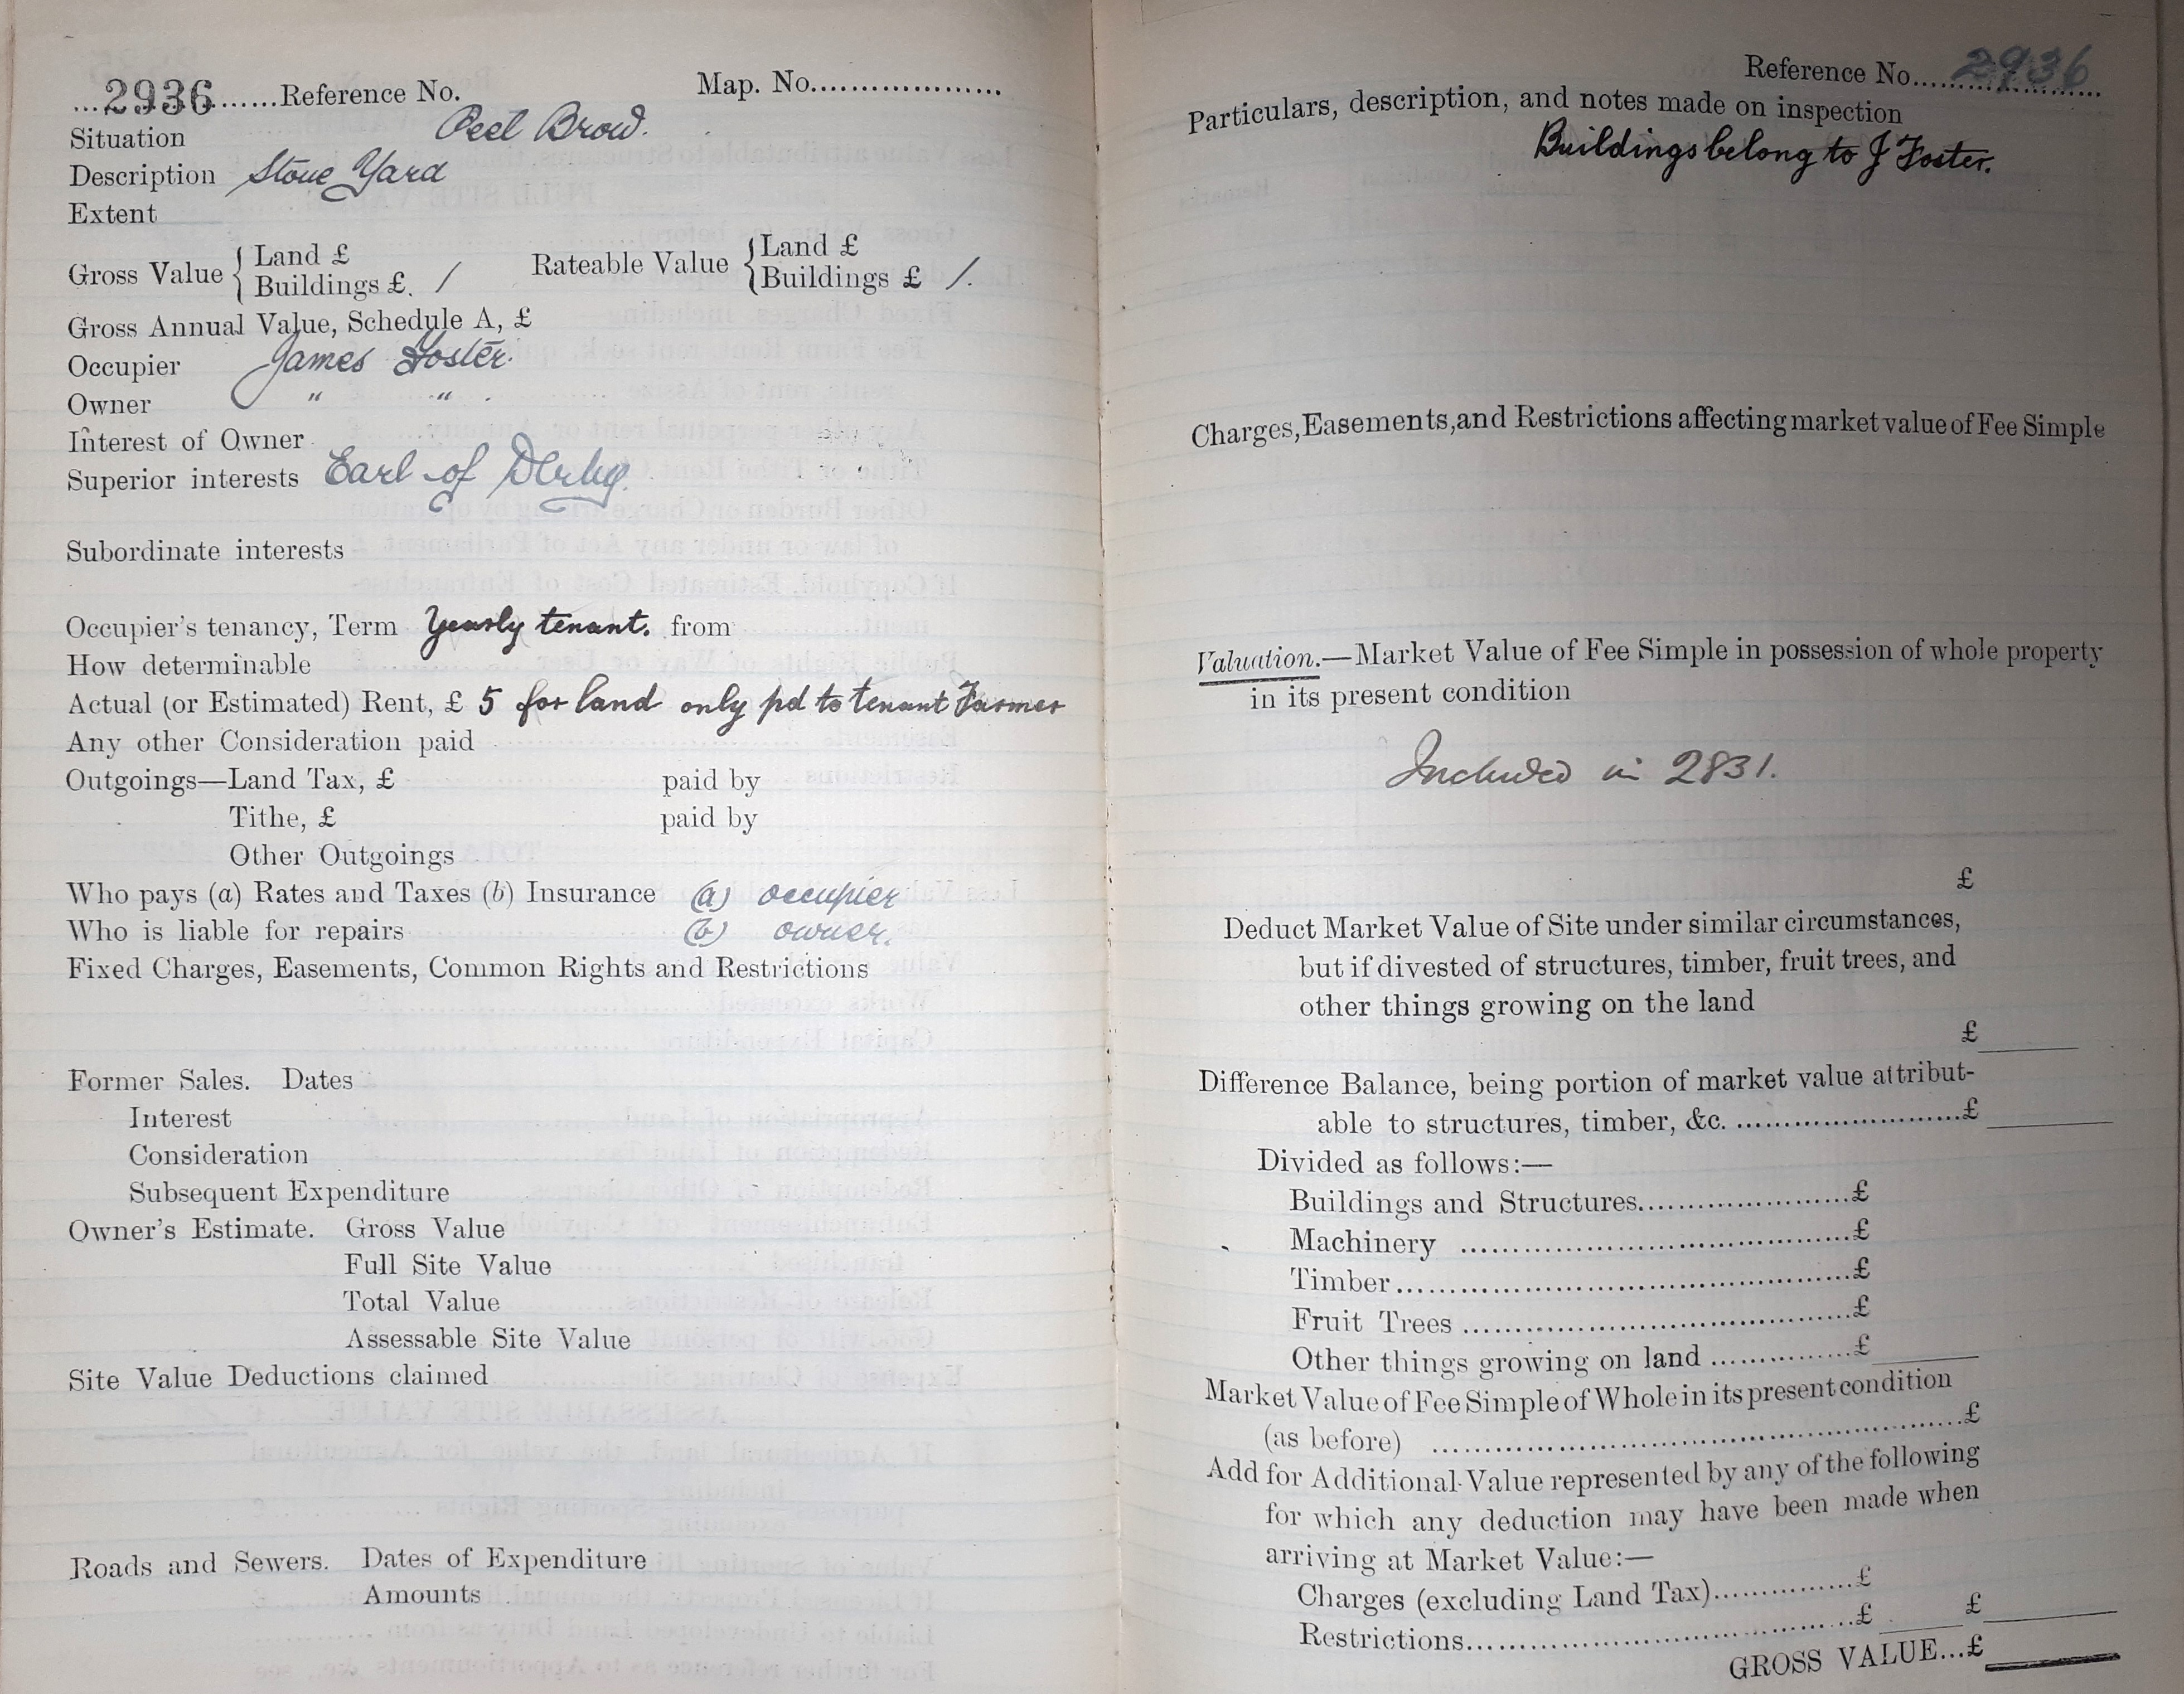 ...2936......Reference No.
Map. No....................
Situation Peel Brow.
Description Stone Yard
Extent
Gross Value { Land £
Buildings £. /
Rateable Value { Land £
Buildings £ /.
Gross Annual Value, Schedule A, £
Occupier James Foster.
Owner " "
Interest of Owner
Superior interests Earl of Derby.
Subordinate interests
Occupier's tenancy, Term Yearly tenant. from
How determinable
Actual (or Estimated) Rent, £ 5 for land only pd to tenant Farmer
Any other Consideration paid
Outgoings—Land Tax, £ paid by
Tithe, £ paid by
Other Outgoings
Who pays (a) Rates and Taxes (b) Insurance (a) occupier
Who is liable for repairs (b) owner.
Fixed Charges, Easements, Common Rights and Restrictions
Former Sales. Dates
Interest
Consideration
Subsequent Expenditure
Owner's Estimate. Gross Value
Full Site Value
Total Value
Assessable Site Value
Site Value Deductions claimed
Roads and Sewers. Dates of Expenditure
Amounts
Reference No....2936
Particulars, description, and notes made on inspection
Buildings belong to J Foster.
Charges, Easements, and Restrictions affecting market value of Fee Simple
Valuation.—Market Value of Fee Simple in possession of whole property
in its present condition
Included in 2831.
£
Deduct Market Value of Site under similar circumstances,
but if divested of structures, timber, fruit trees, and
other things growing on the land
£
Difference Balance, being portion of market value attribut-
able to structures, timber, &c. ........................£
Divided as follows:—
Buildings and Structures......................£
Machinery ......................................£
Timber.............................................£
Fruit Trees ......................................£
Other things growing on land ...............£
Market Value of Fee Simple of Whole in its present condition
(as before) ....................................................£
Add for Additional Value represented by any of the following
for which any deduction may have been made when
arriving at Market Value:—
Charges (excluding Land Tax)...............£
Restrictions.......................................£ £
GROSS VALUE...£